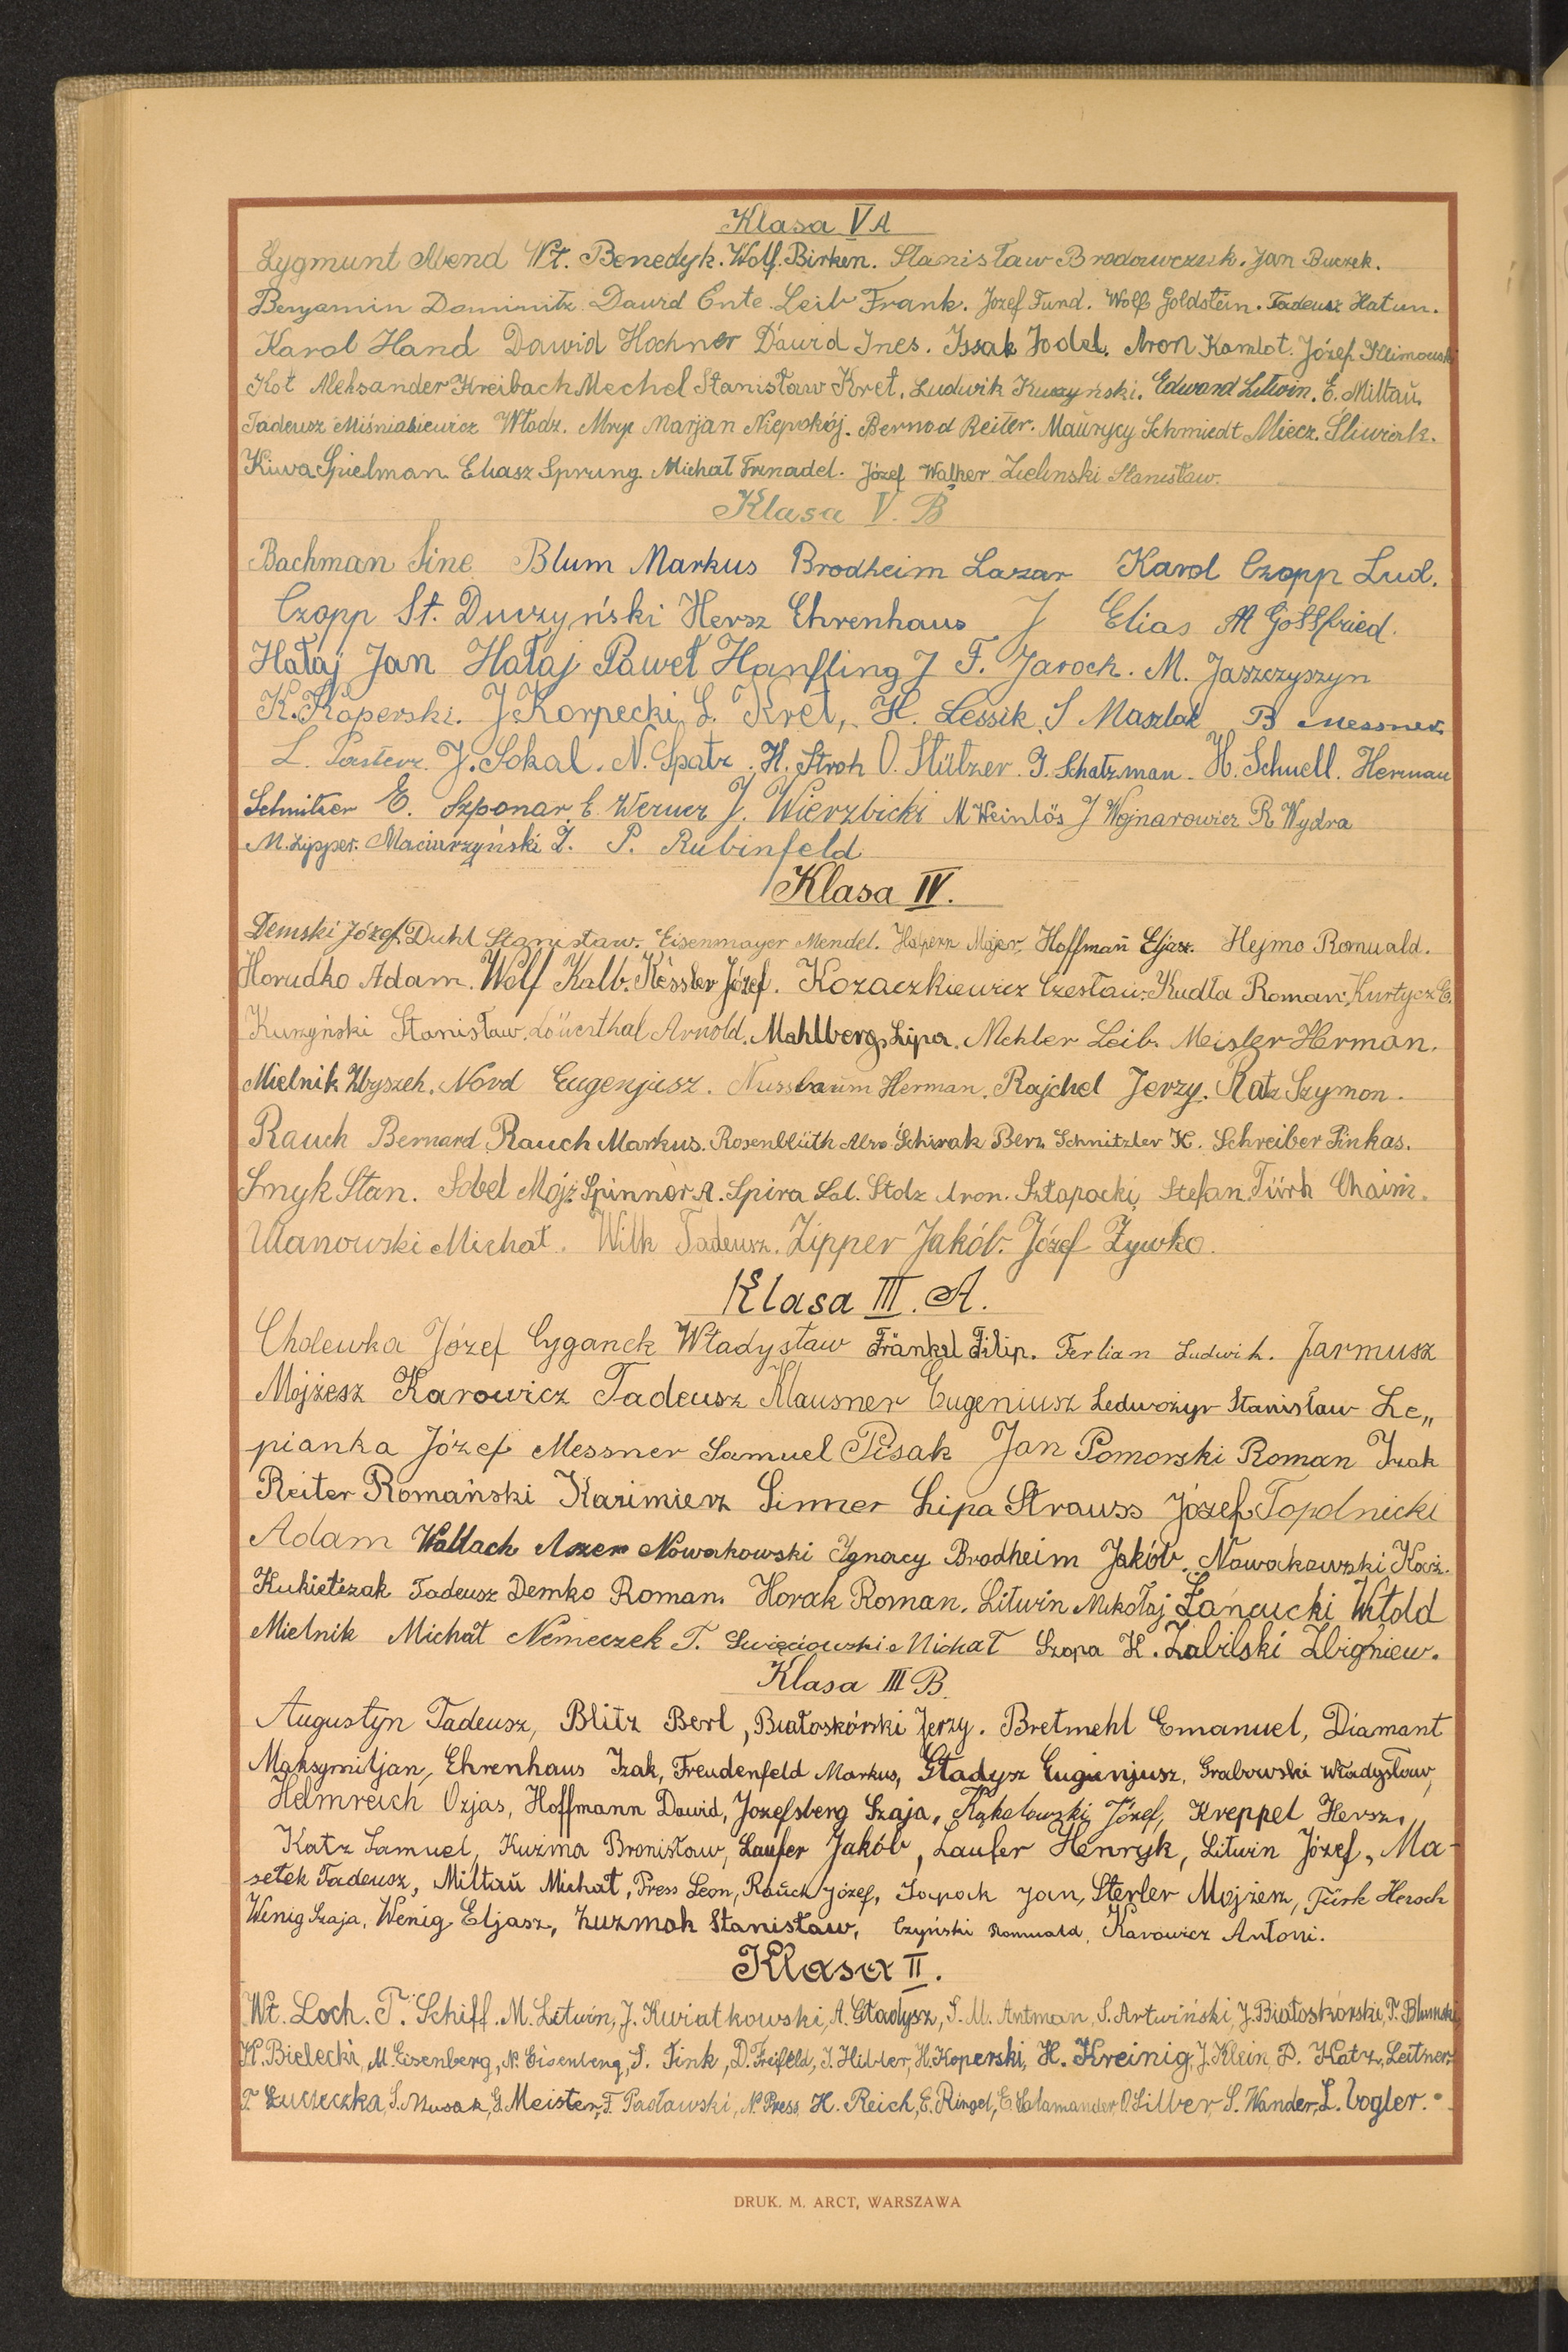 Klasa V A
Zygmunt Abend Wł. Benedyk. Wolf. Birken. Stanisław Brodowczuk. Jan Buczek.
Benjamin Dominitz Dawid Ente. Leib Frank. Józef Fund. Wolf Goldstein. Tadeusz Hatun.
Karol Hand Dawid Hochner Dawid Ines. Issak Jodel. Aron Kamlot. Józef Klimowski
Kot Aleksander Kreibach Mechel Stanisław Kret. Ludwik Kuczyński. Edward Litwin. E. Miltau.
Tadeusz Miśniakiewicz Włodz. Mryc Marjan Niepokój. Bernad Reiter. Maurycy Schmiedt Miecz. Śliwiak.
Kiwa Spielman. Eliasz Sprung. Michał Trenadel. Józef Walker Zielinski Stanisław.
Klasa V. B
Bachman Sine Blum Markus Brodheim Lazar Karol Czopp Lud.
Czopp St. Duczyński Hersz Ehrenhaus J Elias M Gottfried.
Hałaj Jan Hałaj Paweł Hanfling J F. Jaroch. M. Jaszczyszyn
K. Koperski. J. Korpecki, L. Kret, H. Lessik. S Maszlak B Messner.
L. Pasterz. J. Sokal. N. Spatz. H. Stroh O. Stützer. I. Schatzman. H. Schnell. Herman
Schnitzer E. Szponar. E. Werner J. Wierzbicki M Weinlös J Wojnarowicz R Wydra
M. Zipper. Maciurzyński Z. P. Rubinfeld
Klasa IV.
Demski Józef. Duhl Stanisław. Eisenmayer Mendel. Halpern Majer. Hoffman Eljasz. Hejmo Romuald.
Horudko Adam. Wolf Kalb. Kessler Józef. Kozaczkiewicz Czesław. Kudła Roman, Kurtycz E.
Kuszyński Stanisław. Löwenthal Arnold. Mahlberg Lipa. Mehler Leib. Meister Herman.
Mielnik Zbyszek. Nord Eugenjusz. Nussbaum Herman. Rajchel Jerzy. Ratz Szymon.
Rauch Bernard Rauch Markus. Rosenblüth Abra Schirak Berz Schnitzler K. Schreiber Pinkas.
Smyk Stan. Sobel Mojż. Spinner A. Spira Sal. Stolz Aron. Szłapacki Stefan. Türk Chaim.
Ulanowski Michał. Wilk Tadeusz. Zipper Jakób. Józef Żywko.
Klasa III. A.
Cholewka Józef Cyganek Władysław Fränkel Filip. Ferlian Ludwik. Jarmusz
Mojżesz Karowicz Tadeusz Klausner Eugeniusz Ledwożyw Stanisław Le„
pianka Józef Messner Samuel Pisak Jan Pomorski Roman Izak
Reiter Romański Kazimierz Sinner Lipa Strauss Józef Topolnicki
Adam Wallach Aszer Nowakowski Ignacy Brodheim Jakób. Nowakowski Kaź.
Kukietczak Tadeusz Demko Roman. Horak Roman. Litwin Mikołaj Łańcucki Witold
Mielnik Michał Nemeczek T. Święciowski Michał Szopa K. Zabilski Zbigniew.
Klasa III B.
Augustyn Tadeusz, Blitz Berl, Białoskórski Jerzy. Bretmehl Emanuel, Diamant
Maksymiljan, Ehrenhaus Izak, Freudenfeld Markus, Gładysz Eugenjusz, Grabowski Władysław,
Helmreich Ozjas, Hoffmann Dawid, Jozefsberg Szaja, Kąkolowski Józef, Kreppel Hersz,
Katz Samuel, Kuźma Bronisław, Laufer Jakób, Laufer Henryk, Litwin Józef, Ma-
setek Tadeusz, Miltau Michał, Press Leon, Rauch Józef, Sapak Jan, Sterler Mojżesz, Türk Hersch
Wenig Szaja, Wenig Eljasz, Zuzmak Stanisław, Czyński Romuald, Karowicz Antoni.
Klasa II.
Wł. Loch. T. Schiff. M. Litwin, J. Kwiatkowski, A. Gładysz, S. M. Antman, S. Artwiński, J. Białoskórski, T. Blumski
K. Bielecki, M. Eisenberg, N. Eisenberg, S. Fink, D. Freifeld, J. Hibler, H. Koperski, H. Kreinig, J. Klein, P. Katz, Leitner,
F. Łucieczka, S. Musak, G. Meister, F. Padawski, N. Press H. Reich, E. Ringel, E. Salamander, O. Silber, S. Wander, L. Vogler.
DRUK. M. ARCT, WARSZAWA